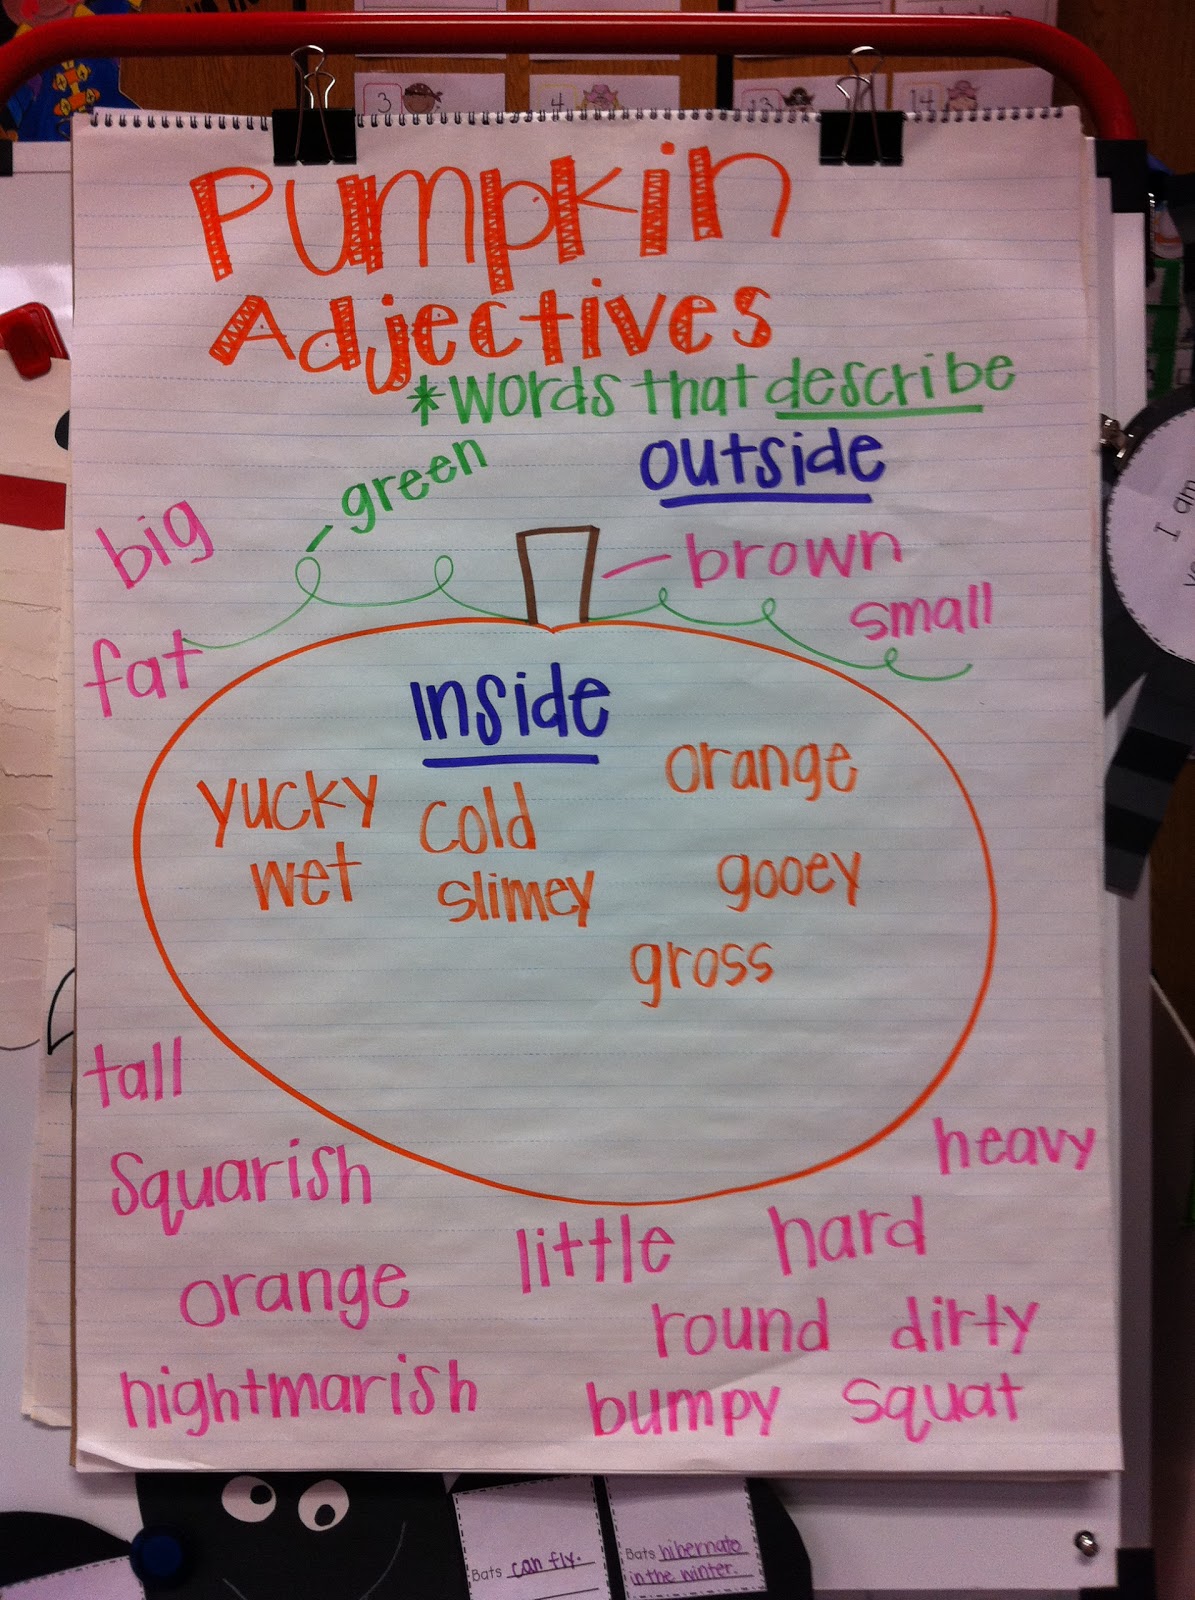 3
4
13
14
Pumpkin
Adjectives
*words that describe
green
outside
big
brown
small
fat
inside
orange
yucky
cold
wet
slimey
gooey
gross
tall
heavy
squarish
little
hard
orange
round
dirty
nightmarish
bumpy
squat
I am
Bats can fly.
Bats hibernate
in the winter.